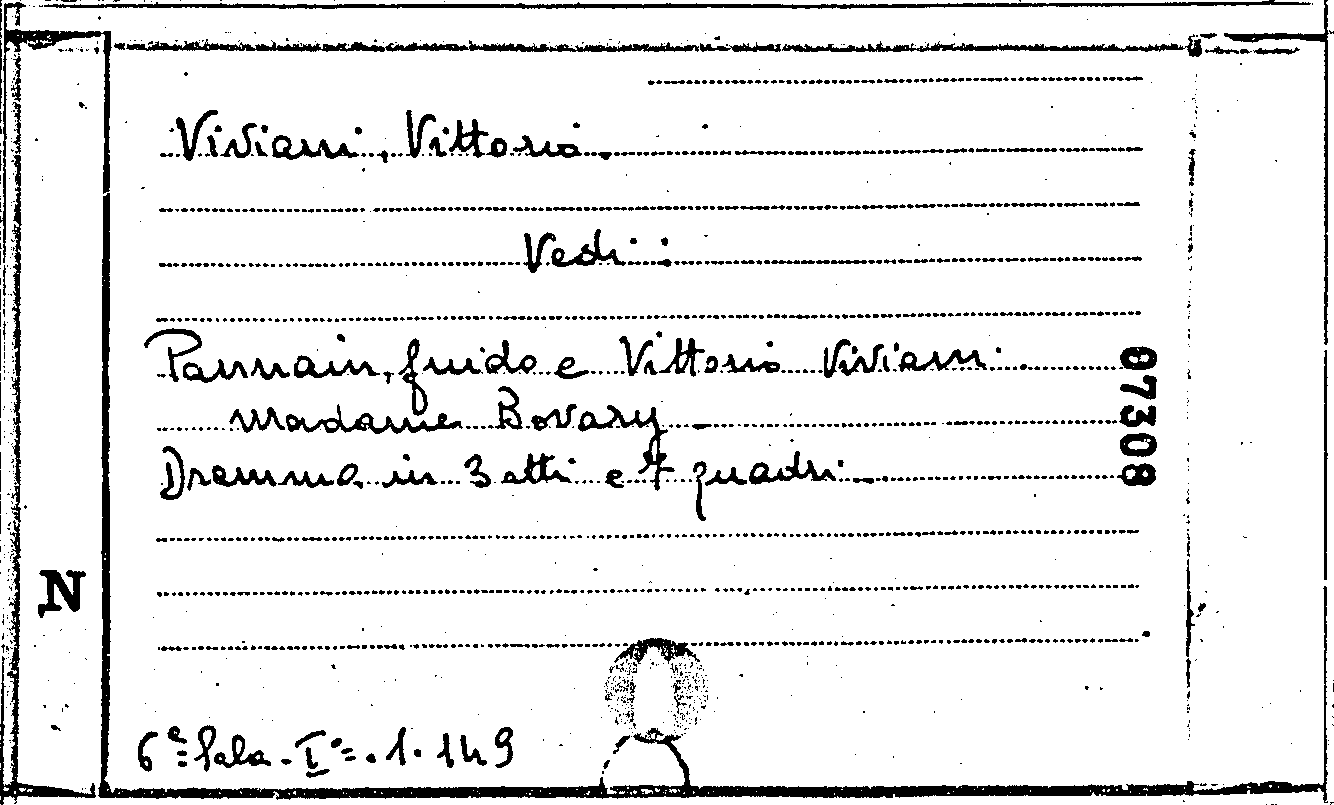 Viviani, Vittorio.
Vedi:
Pannain, Guido e Vittorio Viviani.
Madame Bovary -
Dramma in 3 atti e 7 quadri -
07308
N
6ª Sala - Iº . 1. 149